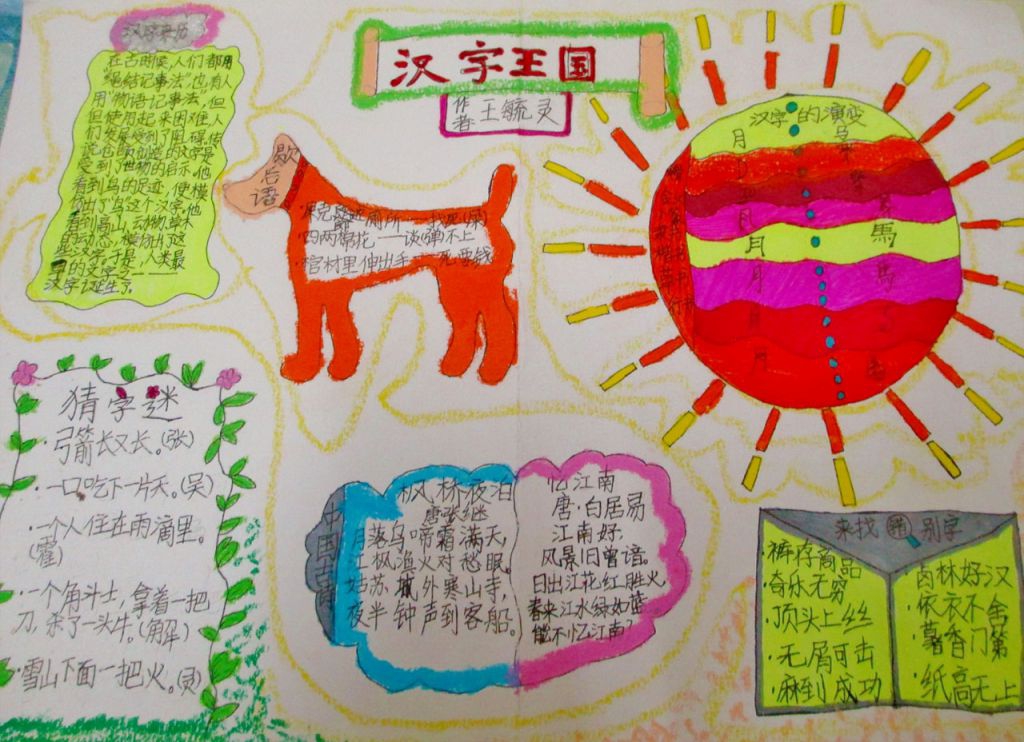 汉字王国
作者:王毓灵
汉字来历
在古时候,人们都用
"结绳记事法"也有人
用"物语记事法,但
但使用起来困难,人
受到了世物的启示,他
看到鸟的足迹,便模
仿出了鸟这个汉字,他
看到高山,动物,草木
的动态,模仿出了这
些汉字,于是,人类最
早的文字之一——
汉字诞生了。
歇后语
厕所——
·四两棉花——谈(弹)不上
·棺材里伸出手——死要钱
汉字的演变
月
馬
月
月
月
猜字谜
弓箭长又长。(张)
·一口吃下一片天。(吴)
·一个人住在雨滴里。
(霍)
·一个角斗士,拿着一把
刀,杀了一头牛。(解)
·雪山下面一把火。(灵)
中国古诗
枫桥夜泊
唐张继
月落乌啼霜满天,
江枫渔火对愁眠。
姑苏城外寒山寺,
夜半钟声到客船。
忆江南
唐·白居易
江南好.
风景旧曾谙。
日出江花红胜火
春来江水绿如蓝
能不忆江南?
来找错别字
·裤存商品
·奇乐无穷
·顶头上丝
·无屑可击
·麻到成功
卤林好汉
·依衣不舍
·薯香门第
·纸高无上